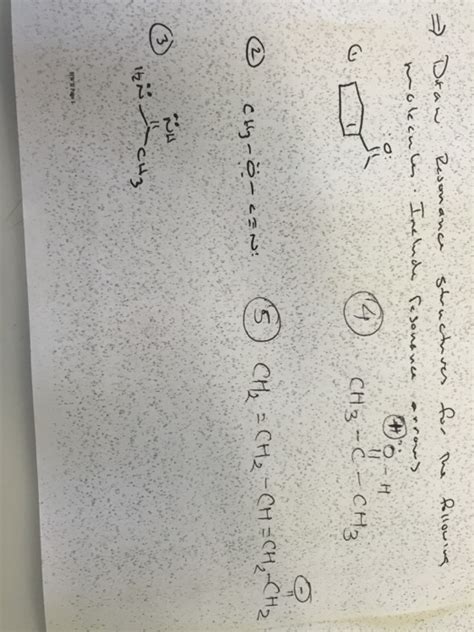 ⇒ Draw Resonance structures for the following
molecules. Include resonance arrows
①
:O:
② CH3-Ö-C≡N:
③ H2N̈
N̈H
CH3
④ CH3-C-CH3
⊕
Ö-H
⑤ CH2=CH2-CH=CH2-CH2
⊖